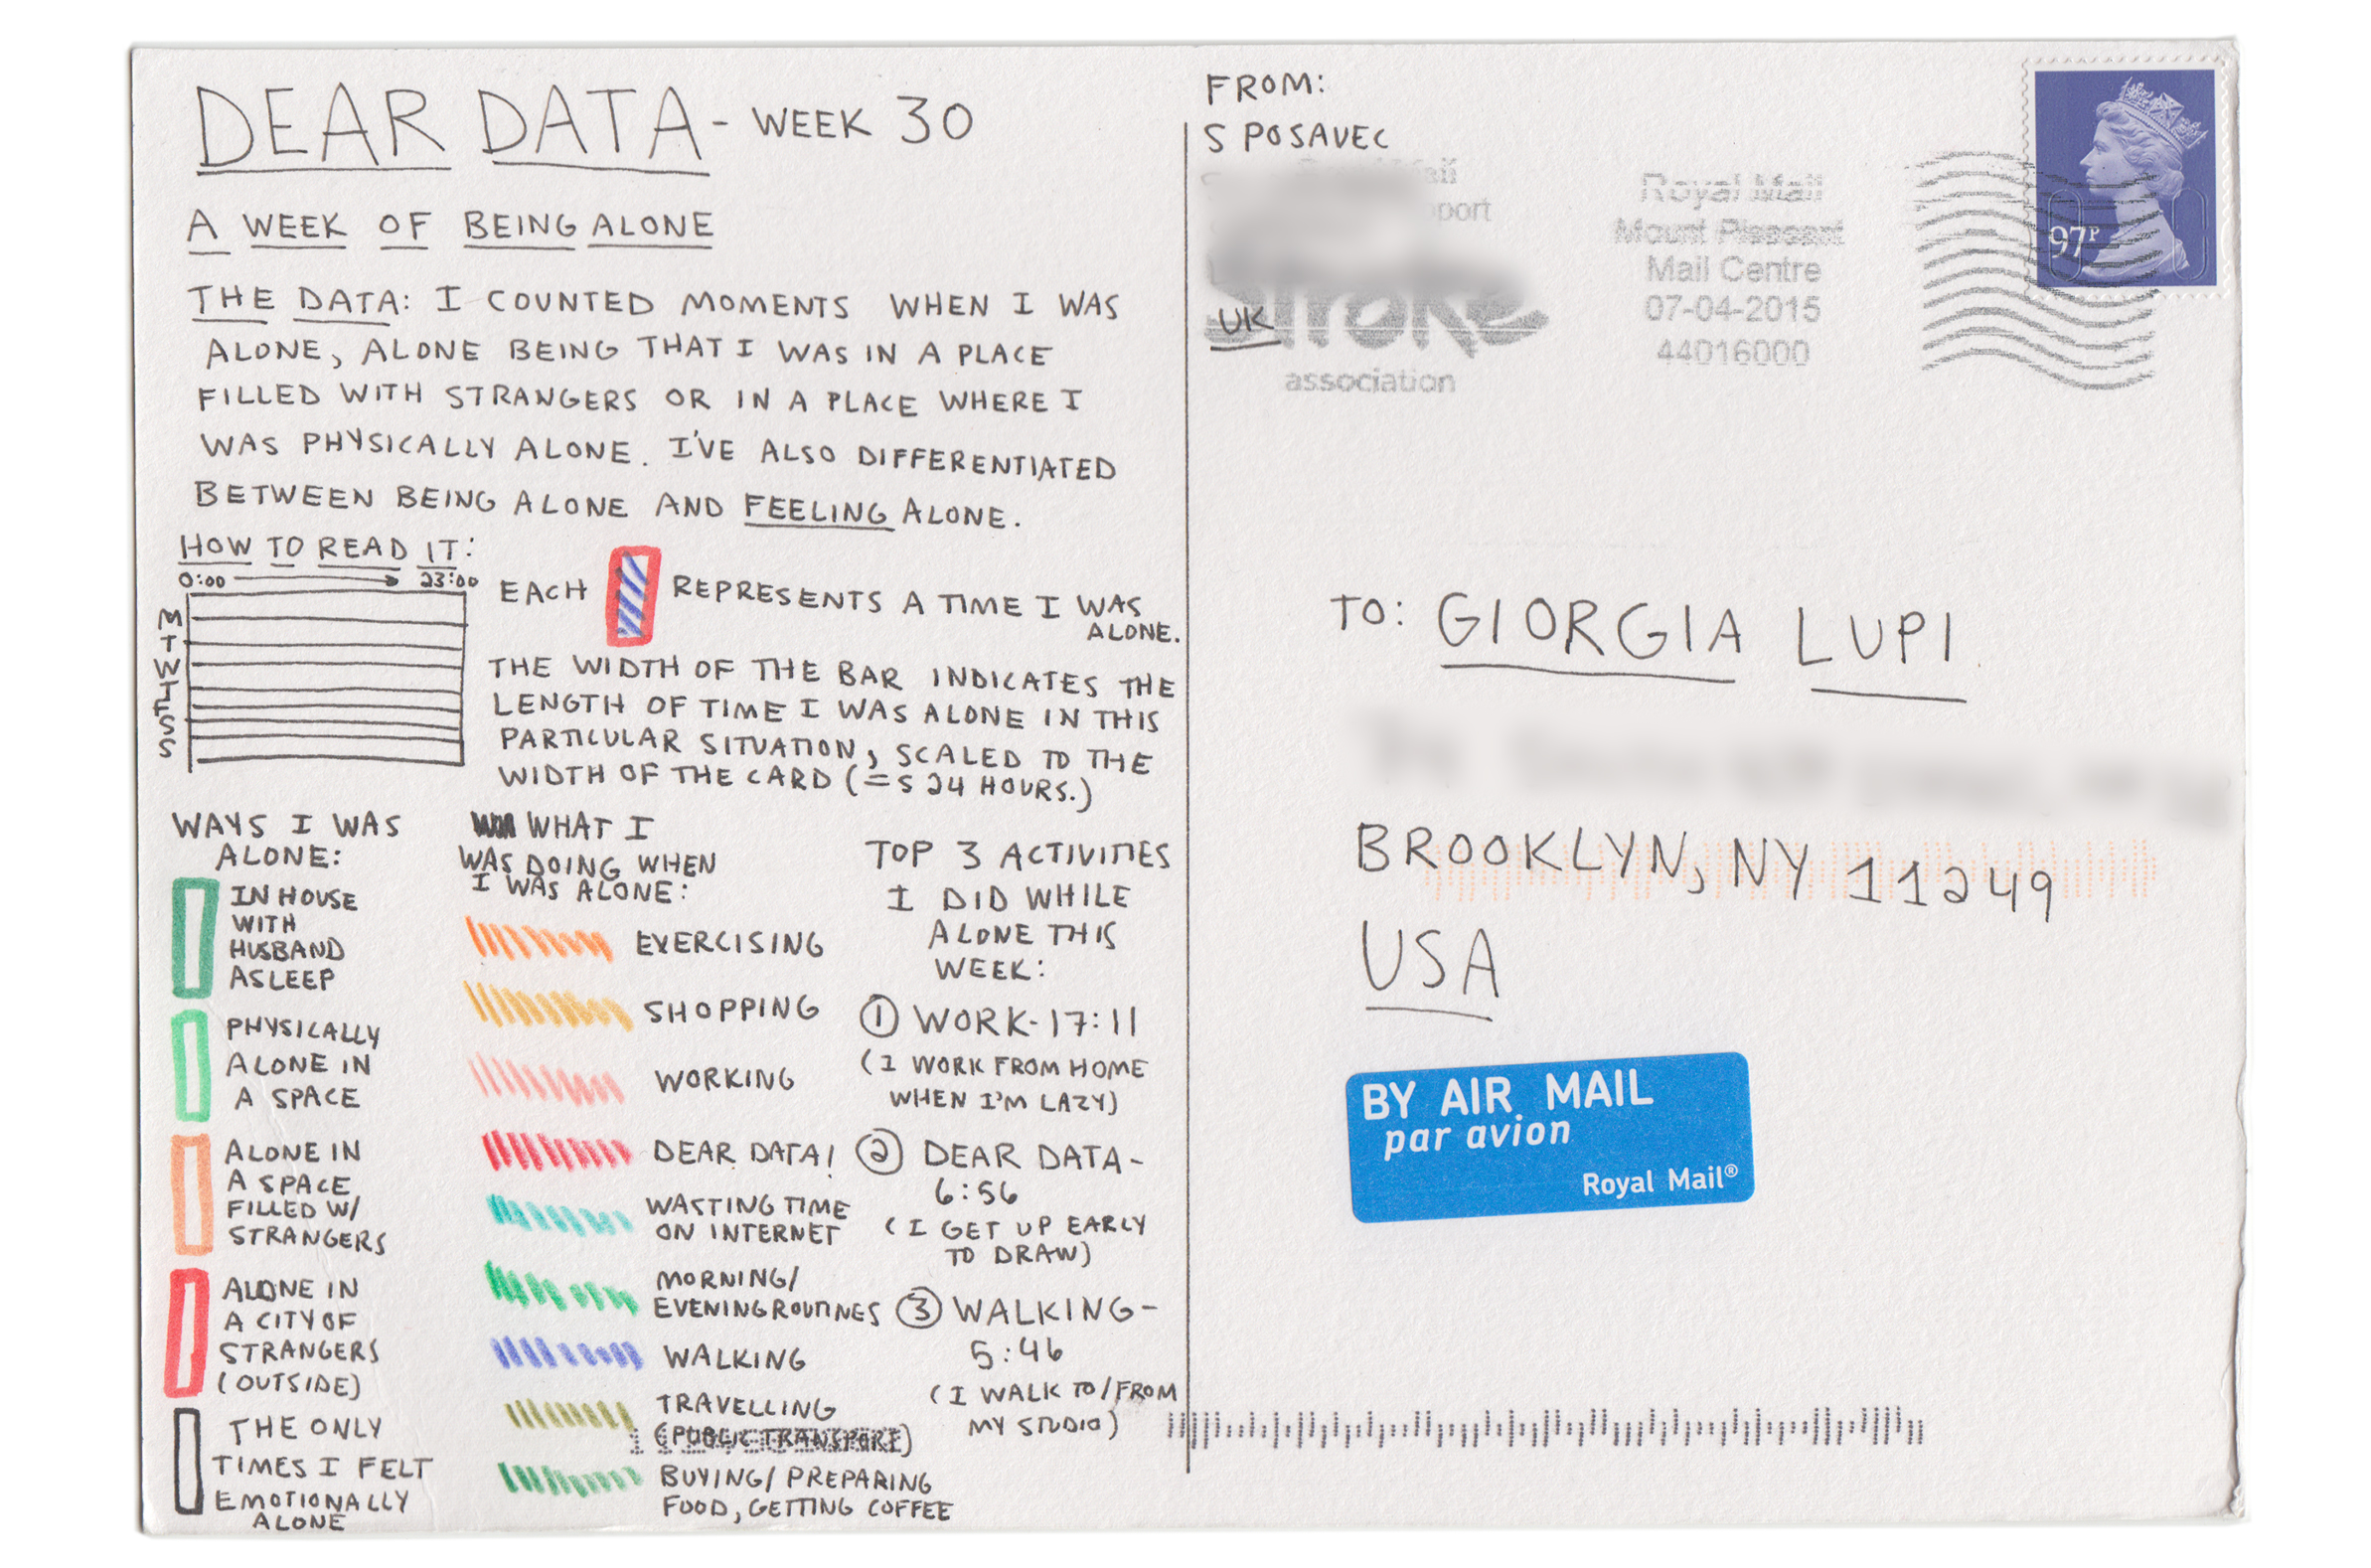 DEAR DATA - WEEK 30
A WEEK OF BEING ALONE
THE DATA: I COUNTED MOMENTS WHEN I WAS
ALONE, ALONE BEING THAT I WAS IN A PLACE
FILLED WITH STRANGERS OR IN A PLACE WHERE I
WAS PHYSICALLY ALONE. I'VE ALSO DIFFERENTIATED
BETWEEN BEING ALONE AND FEELING ALONE.
HOW TO READ IT:
0:00 23:00
M
T
W
T
F
S
S
EACH REPRESENTS A TIME I WAS
ALONE.
THE WIDTH OF THE BAR INDICATES THE
LENGTH OF TIME I WAS ALONE IN THIS
PARTICULAR SITUATION, SCALED TO THE
WIDTH OF THE CARD (=S 24 HOURS.)
WAYS I WAS
ALONE:
IN HOUSE
WITH
HUSBAND
ASLEEP
PHYSICALLY
ALONE IN
A SPACE
ALONE IN
A SPACE
FILLED W/
STRANGERS
ALONE IN
A CITY OF
STRANGERS
(OUTSIDE)
THE ONLY
TIMES I FELT
EMOTIONALLY
ALONE
WHAT I
WAS DOING WHEN
I WAS ALONE:
EXERCISING
SHOPPING
WORKING
DEAR DATA!
WASTING TIME
ON INTERNET
MORNING/
EVENING ROUTINES
WALKING
TRAVELLING
(PUBLIC TRANSPORT)
BUYING/PREPARING
FOOD, GETTING COFFEE
TOP 3 ACTIVITIES
I DID WHILE
ALONE THIS
WEEK:
1 WORK-17:11
(I WORK FROM HOME
WHEN I'M LAZY)
2 DEAR DATA-
6:56
(I GET UP EARLY
TO DRAW)
3 WALKING-
5:46
(I WALK TO/FROM
MY STUDIO)
FROM:
S POSAVEC
UK
Stroke
association
Royal Mail
Mount Pleasant
Mail Centre
07-04-2015
44016000
97P
TO: GIORGIA LUPI
BROOKLYN, NY 11249
USA
BY AIR MAIL
par avion
Royal Mail®